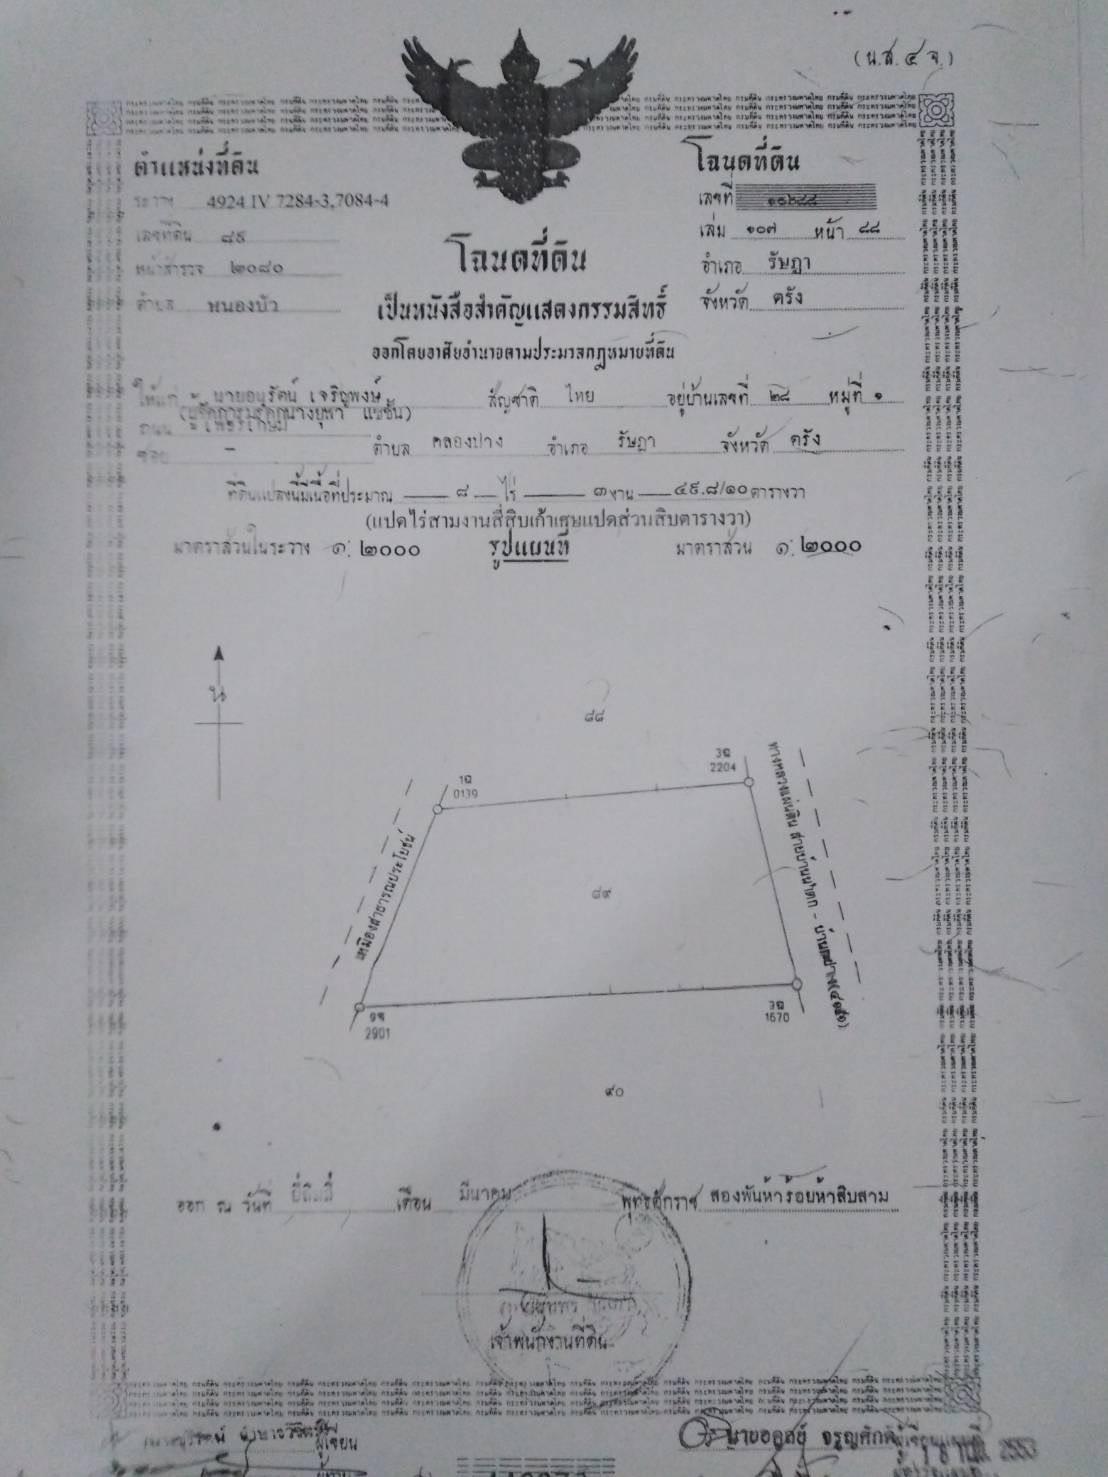 (น.ส. ๔ จ.)
ตำแหน่งที่ดิน
ระวาง 4924 IV 7284-3,7084-4
เลขที่ดิน ๘๙
หน้าสำรวจ ๒๐๘๐
ตำบล หนองบัว
โฉนดที่ดิน
เลขที่
เล่ม ๑๐๗ หน้า ๘๘
อำเภอ รัษฎา
จังหวัด ตรัง
โฉนดที่ดิน
เป็นหนังสือสำคัญแสดงกรรมสิทธิ์
ออกโดยอาศัยอำนาจตามประมวลกฎหมายที่ดิน
ให้แก่ นายอนุรัตน์ เจริญพงษ์ สัญชาติ ไทย อยู่บ้านเลขที่ ๒๘ หมู่ที่ ๑
(ผู้จัดการมรดกนางยุพา แซ่ซั่น)
ถนน เพชรเกษม
ซอย - ตำบล คลองปาง อำเภอ รัษฎา จังหวัด ตรัง
ที่ดินแปลงนี้มีเนื้อที่ประมาณ ๘ ไร่ ๓ งาน ๔๙.๘/๑๐ ตารางวา
(แปดไร่สามงานสี่สิบเก้าเศษแปดส่วนสิบตารางวา)
มาตราส่วนในระวาง ๑: ๒๐๐๐ รูปแผนที่ มาตราส่วน ๑: ๒๐๐๐
น
๘๘
1ฉ
0139
3ฉ
2204
เหมืองสาธารณประโยชน์
๘๙
2901
3ฉ
1670
๙๐
ออก ณ วันที่ ยี่สิบสี่ เดือน มีนาคม พุทธศักราช สองพันห้าร้อยห้าสิบสาม
เจ้าพนักงานที่ดิน
ผู้เขียน
นายอดุลย์ จรูญศักดิ์
2553